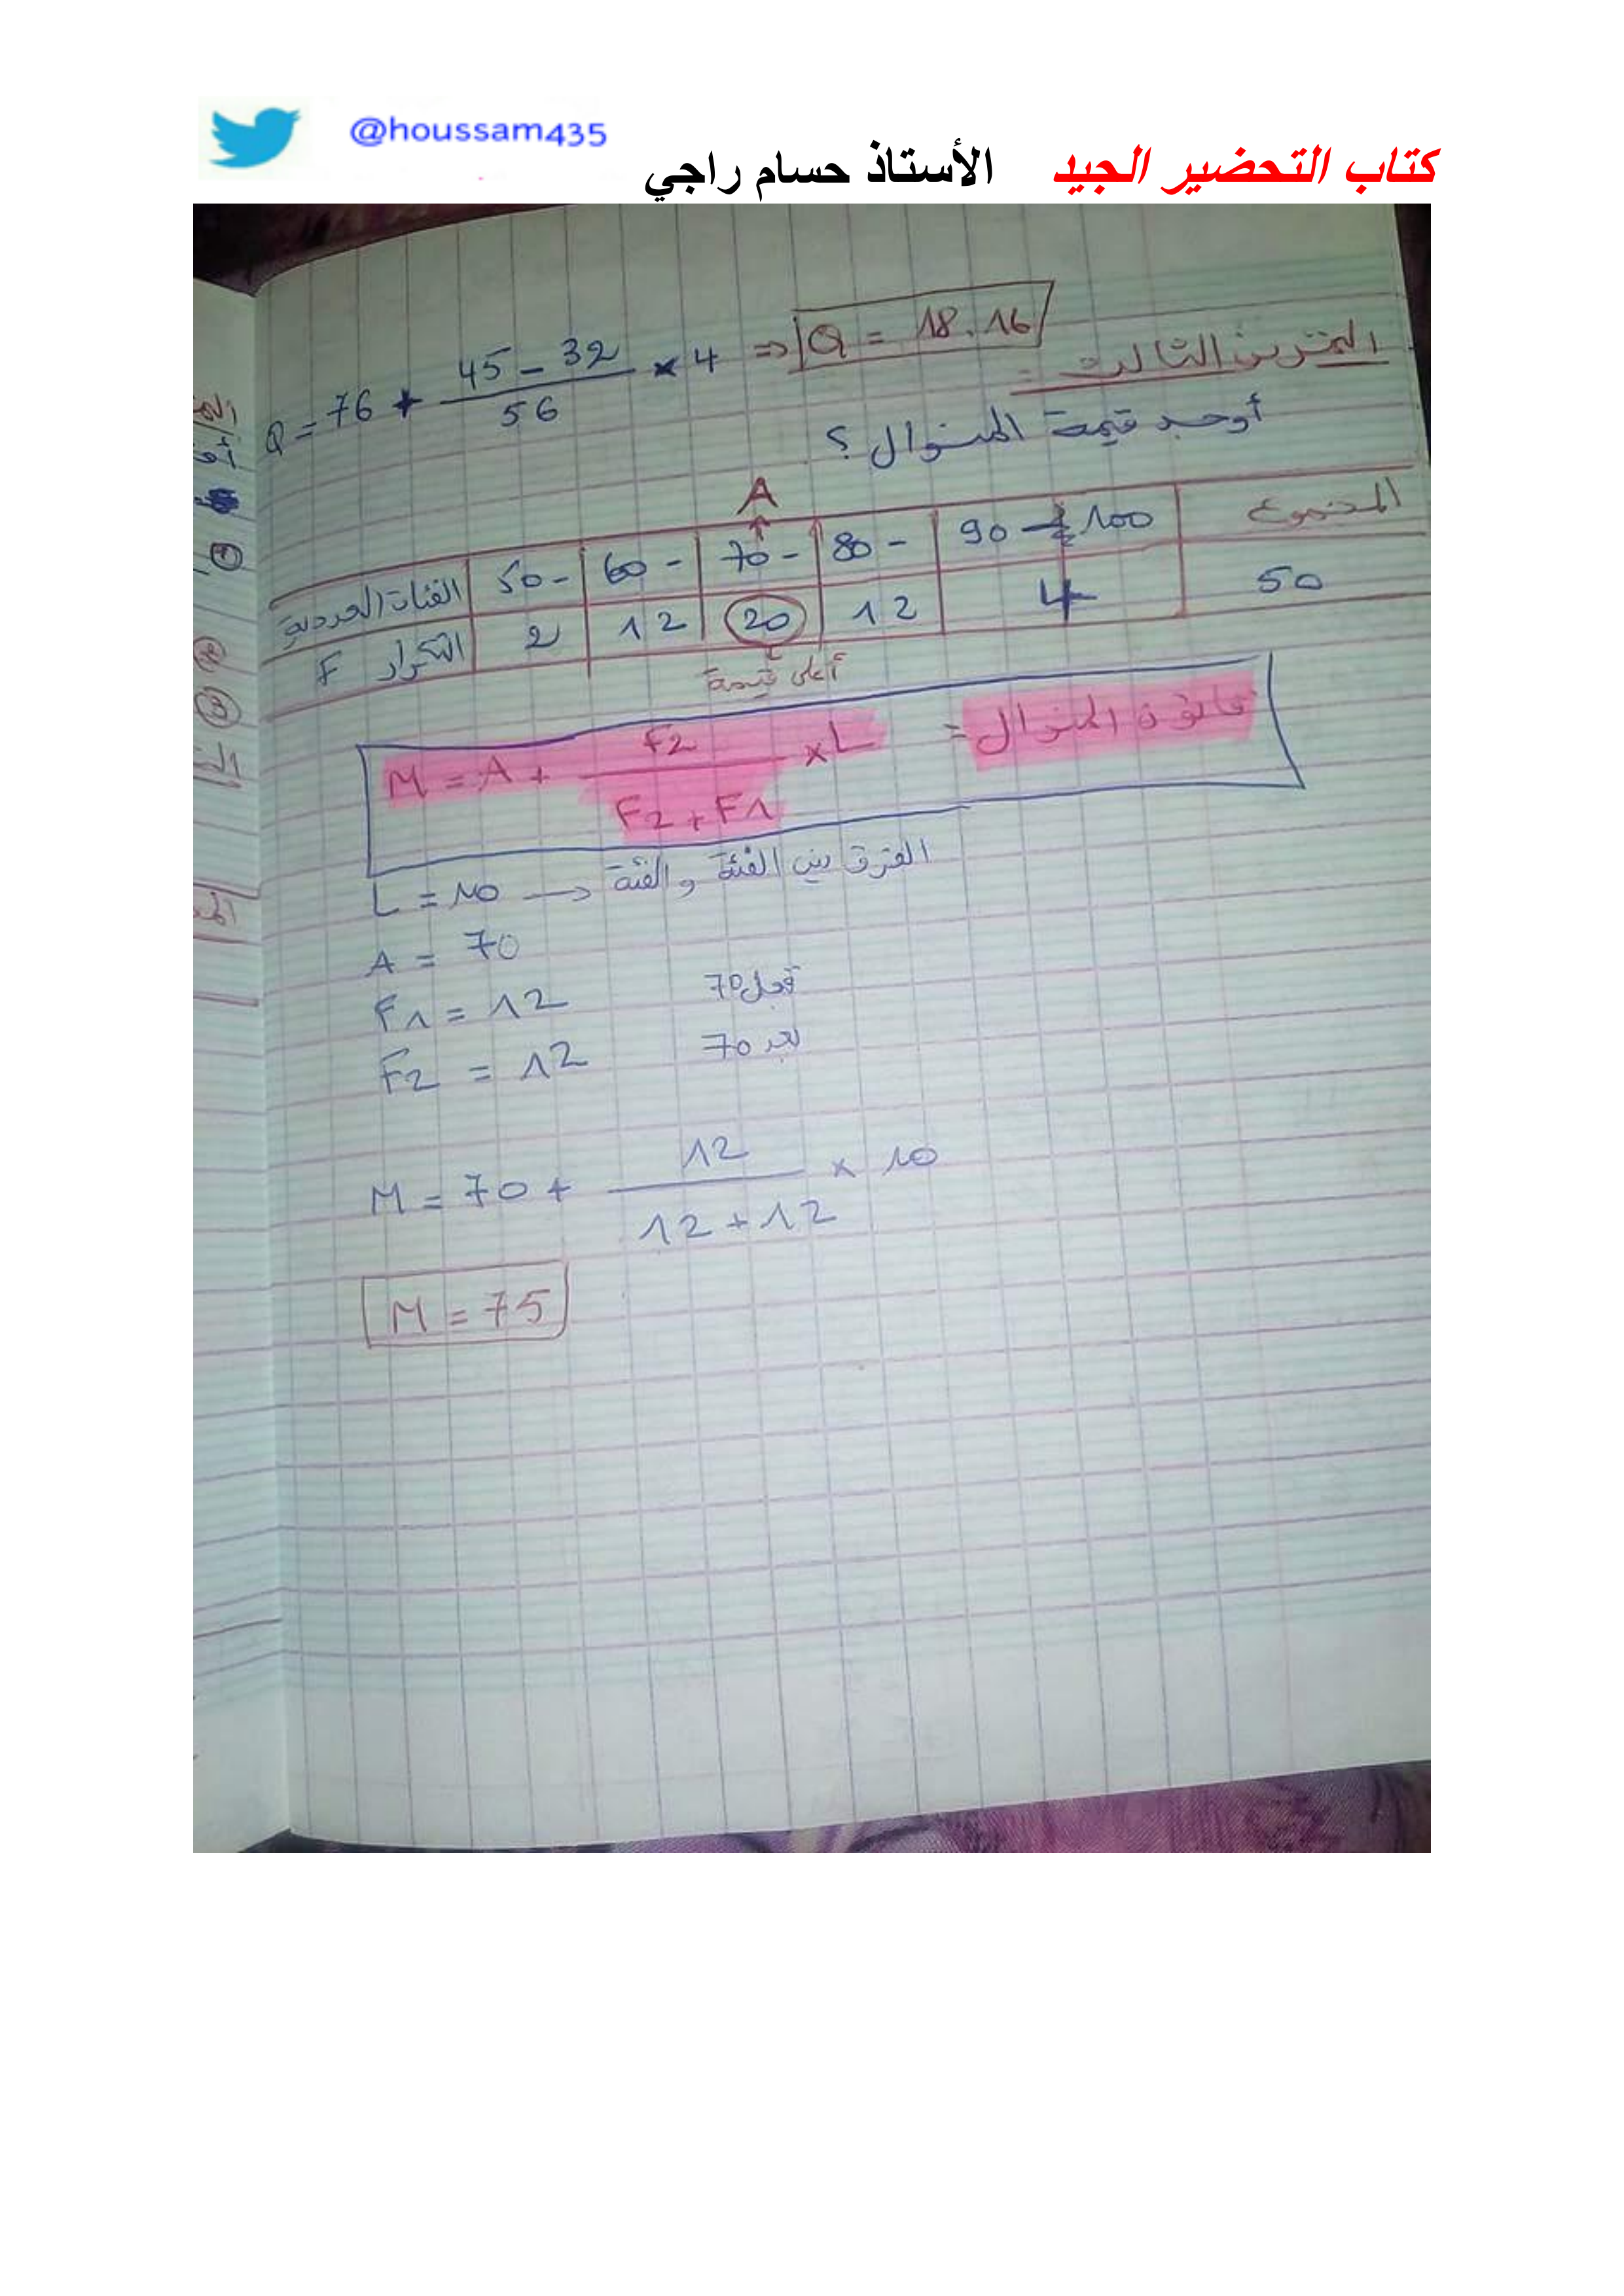 @houssam435
كتاب التحضير الجيد الأستاذ حسام راجي
Q = 76 + (45 - 32) / 56 × 4 ⇒ Q = 18.16
التمرين الثالث =
أوجد قيمة المنوال ؟
A
الفئات الحدودية 50 - 60 - 70 - 80 - 90 - 100 المجموع
التكرار F 2 12 20 12 4 50
أعلى قيمة
قانون المنوال = M = A + F2 / (F2 + F1) × L
L = 10 → الفرق بين الفئة والفئة
A = 70
F1 = 12 قبل 70
F2 = 12 بعد 70
M = 70 + 12 / (12 + 12) × 10
M = 75